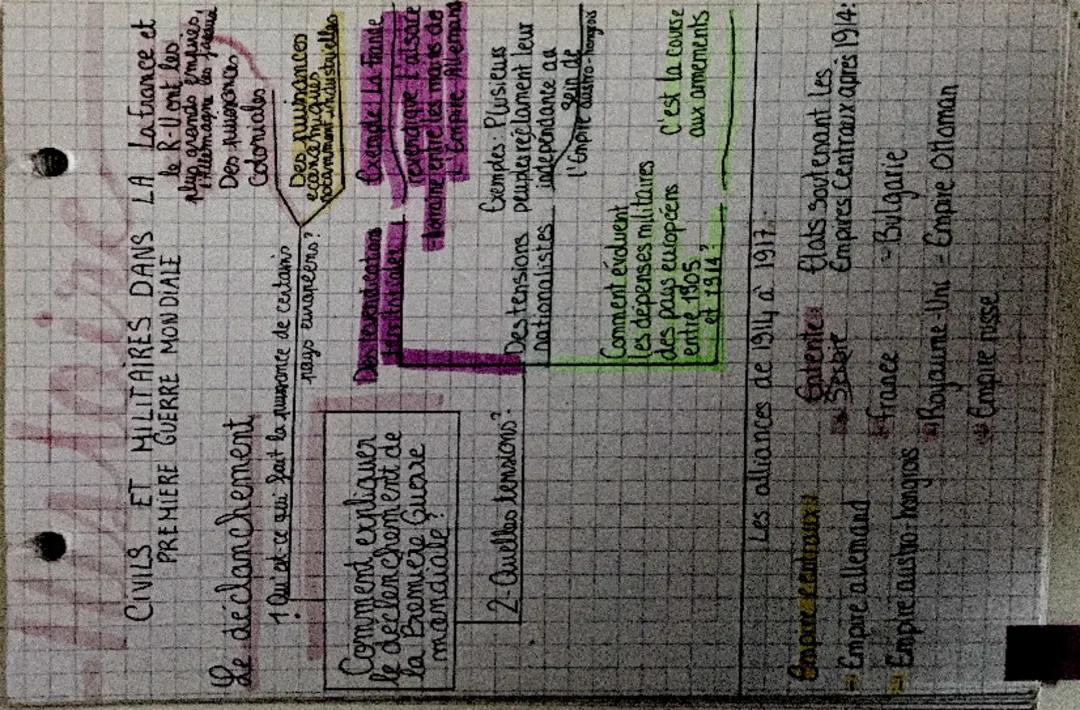 Histoire
CIVILS ET MILITAIRES DANS LA
PREMIÈRE GUERRE MONDIALE
Le déclanchement
1 Qui est-ce qui fait la puissance de certains
pays européens?
La france et
le R-U ont les
plus grands empires,
l'Allemagne les jalouse
Des puissances
Coloniales
Des puissances
économiques
notamment industrielles
Comment expliquer
le déclenchement de
la Première Guerre
mondiale?
2-Quelles tensions?
Des revendications
territoriales
Exemple: La France
revendique l'alsace
-lorraine entre les mains de
l'Empire Allemand
Des tensions
nationalistes
Exemples: Plusieurs
peuples réclament leur
indépendance au
sein de
l'Empire austro-hongrois
Comment évoluent
les dépenses militaires
des pays européens
entre 1905
et 1914?
C'est la course
aux armements
Les alliances de 1914 à 1917:
Empire centraux:
- Empire allemand
- Empire austro-hongrois
Entente:
Serbie
France
Royaume-Uni
Empire russe
États soutenant les
Empires Centraux après 1914:
- Bulgarie
- Empire Ottoman